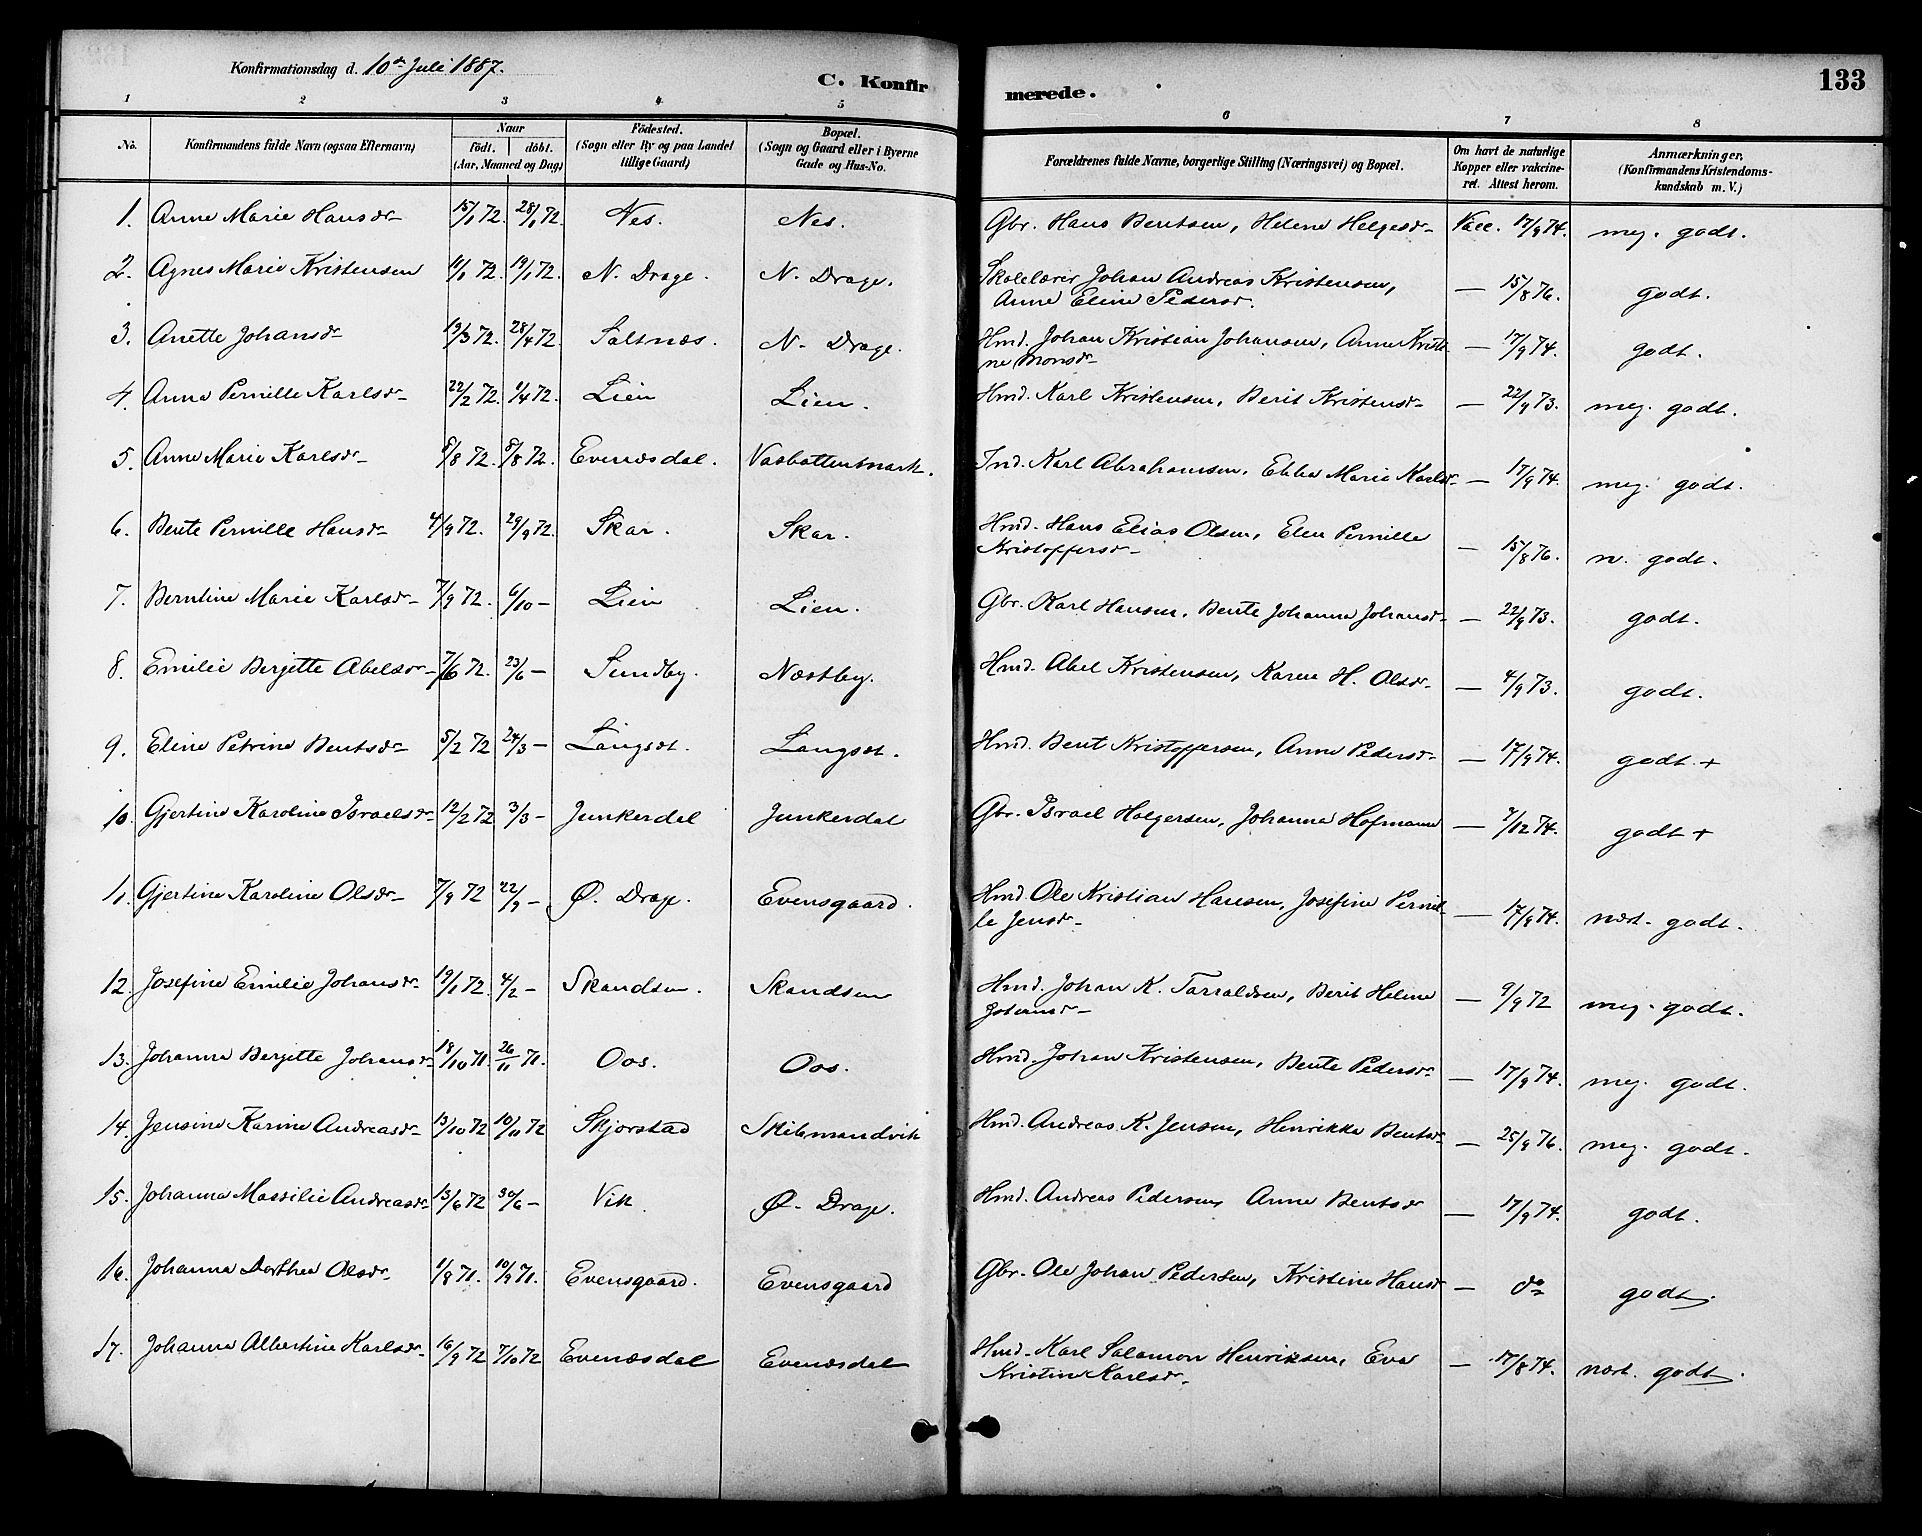 Konfirmationsdag d. 10de Juli 1887.
C. Konfir
merede.
133
1 2 3 4 5 6 7 8
No. Konfirmandens fulde Navn (ogsaa Efternavn) Naar födt. döbt. (Aar, Maaned og Dag) Födested. (Sogn eller By og paa Landet tillige Gaard) Bopæl. (Sogn og Gaard eller i Byerne Gade og Hus-No. Forældrenes fulde Navne, borgerlige Stilling (Næringsvei) og Bopæl. Om havt de naturlige Kopper eller vakcineret. Attest herom. Anmærkninger. (Konfirmandens Kristendomskundskab m. V.)
1. Anne Marie Hansdr 15/1 72. 28/1 72. Nes. Nes. Gbr. Hans Bentsen, Helene Helgesdr Vacc. 17/9 74. meg. godt.
2. Agnes Marie Kristensen 11/1 72. 19/1 72. N. Drage. N. Drage. Skolelærer Johan Andreas Kristensen, — 15/8 76. godt.
Anne Eline Pedersd.
3. Anette Johansdr 19/3 72. 28/4 72. Saltnæs. N. Drage. Hmd. Johan Kristian Johansen, Anne Kristi- — 17/9 74. godt.
ne Monsdr
4. Anna Pernille Karlsdr 22/2 72. 1/4 72. Lien Lien. Hmd. Karl Kristensen, Berit Kristensdr — 22/9 73. meg. godt.
5. Anne Marie Karlsdr 8/8 72. 8/8 72. Evenæsdal. Vasbottenmark. Ind. Karl Abrahamsen, Ebba Marie Karlsdr — 17/9 74. meg. godt.
6. Bente Pernille Hansdr 4/9 72. 29/9 72. Skar. Skar. Hmd. Hans Elias Olsen, Elen Pernille — 15/8 76. n. godt.
Kristoffersdr
7. Berntine Marie Karlsdr 7/9 72. 6/10 — Lien Lien. Gbr. Karl Hansen, Bente Johanna Johansdr — 22/9 73. godt.
8. Emilie Berjette Abelsdr 7/6 72. 23/6 — Sundby. Næstby. Hmd. Abel Kristensen, Karen H. Olsdr — 4/9 73. godt.
9. Eline Petrine Bentsdr 5/2 72 24/3 — Langset. Langset. Hmd. Bent Kristoffersen, Anne Pedersdr — 17/9 74. godt. +
10. Gjertine Karoline Israelsdr 12/2 72 3/3 — Junkerdal Junkerdal Gbr. Israel Holgersen, Johanna Hofmann — 7/12 74. godt +
11. Gjertine Karoline Olsdr 7/9 72 22/9 — Ø. Drage. Evensgaard. Hmd. Ole Kristian Hansen, Josefine Pernil- — 17/9 74. næst. godt.
le Jensdr
12. Josefine Emilie Johansdr 19/1 72. 4/2 — Skandsen. Skandsen Hmd. Johan K. Tarraldsen, Berit Helene — 9/9 72 meg. godt.
13. Johanna Berjette Johansdr 18/10 71. 26/11 71. Oos. Oos. Hmd. Johan Kristensen, Bente Pedersdr — 17/9 74. meg. godt.
14. Jensine Karine Andreasdr 13/10 72 10/11 72 Skjorstad Skibmandvik Hmd. Andreas K. Jensen, Henrikka Bentsdr — 25/9 76. meg. godt.
15. Johanna Massilie Andreasdr 13/6 72 30/6 — Vik. Ø. Drage. Hmd. Andreas Pedersen, Anne Bentsdr — 17/9 74. godt.
16. Johanna Dorthea Olsdr 1/8 71. 10/9 71. Evensgaard. Evensgaard Gbr. Ole Johan Pedersen, Kristine Hansdr — do godt.
17. Johanna Albertine Karlsdr 16/9 72 7/10 72 Evenæsdal Evenæsdal Hmd. Karl Salamon Henriksen, Eva — 17/8 74. næst. godt.
Kristine Karlsdr